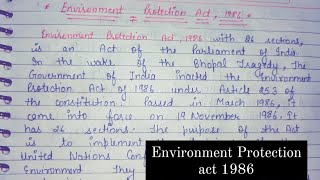 * Environment Protection Act, 1986 *
Environment Protection Act, 1986 with 26 sections,
is an Act of the Parliament of India.
In the wake of the Bhopal Tragedy, The
Government of India inacted the Environment
Protection Act of 1986 under Article 253 of
the constitution. Passed in March 1986, it
came into force on 19 November 1986. It
has 26 sections. The purpose of the Act
is to implement the
United Nations Conf
Environment they
Environment Protection
act 1986